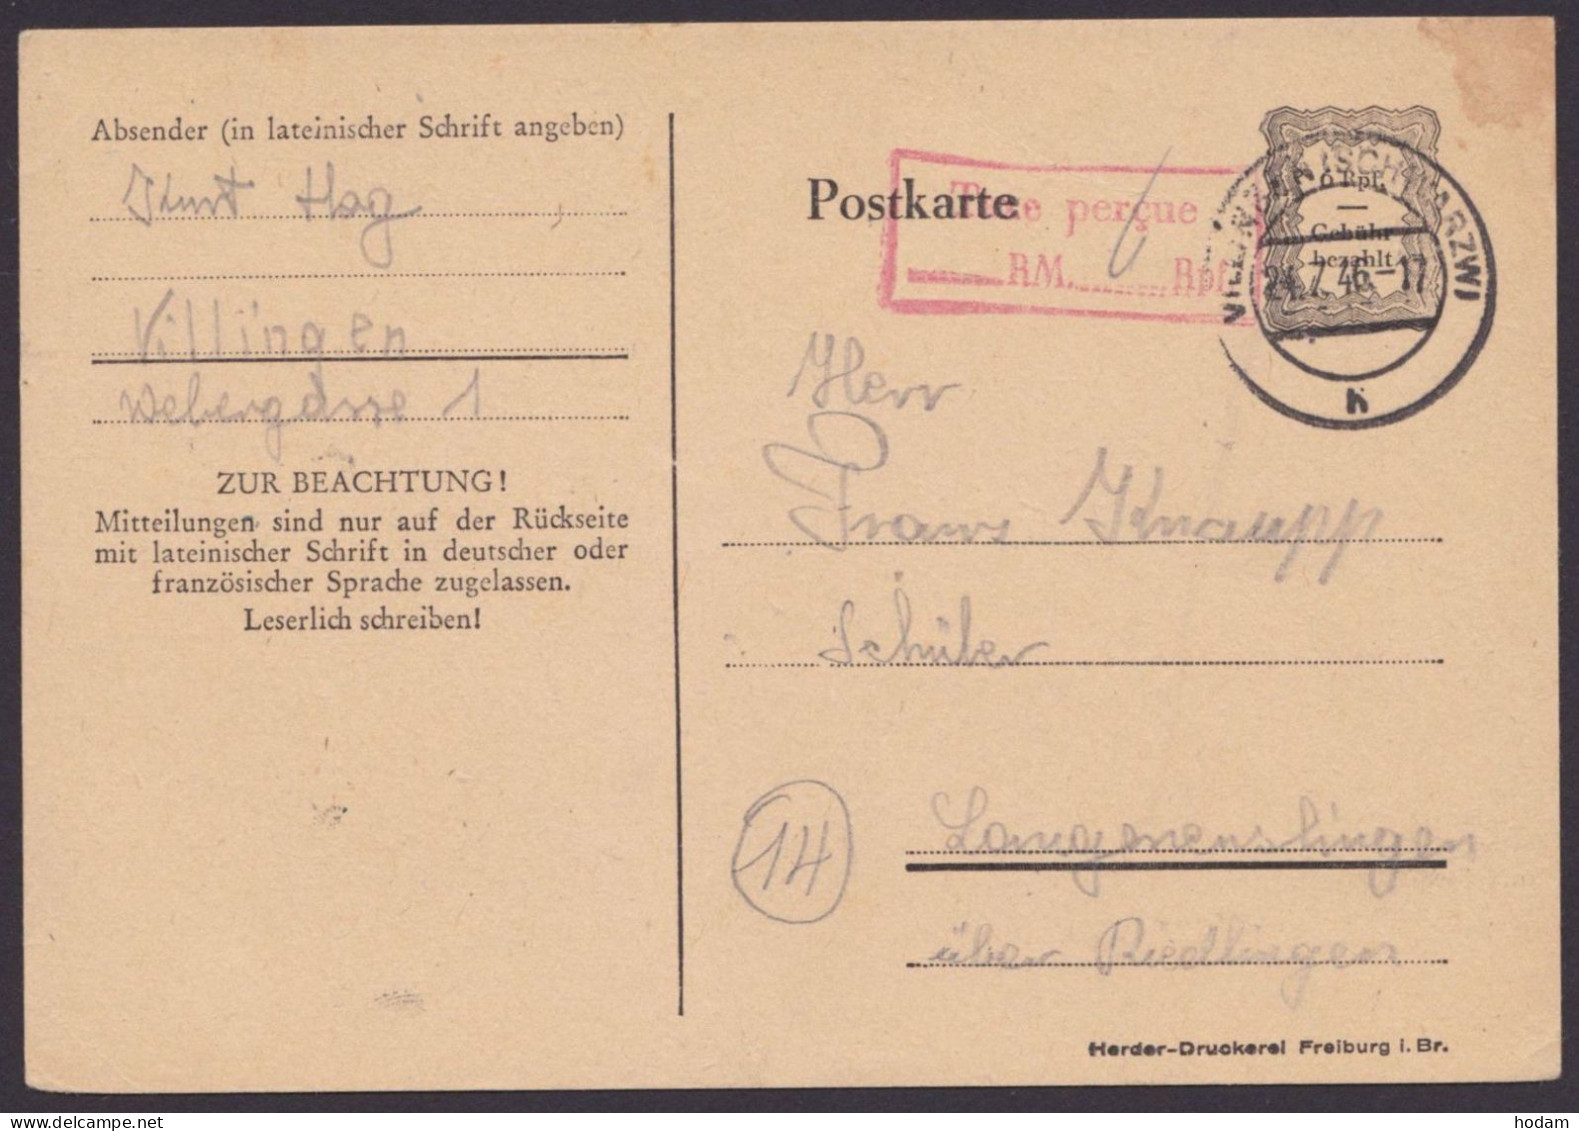 Absender (in lateinischer Schrift angeben)
Kurt Hog
Villingen
Webergasse 1
ZUR BEACHTUNG!
Mitteilungen sind nur auf der Rückseite
mit lateinischer Schrift in deutscher oder
französischer Sprache zugelassen.
Leserlich schreiben!
Postkarte
Taxe perçue
RM. 6 Rpf.
6 Rpf.
—
Gebühr
bezahlt
VILLINGEN (SCHWARZW)
24.7.46.-17
h
Herr
Franz Knaupp
Schüler
14
Langenenslingen
über Riedlingen
Herder-Druckerei Freiburg i. Br.
hodam